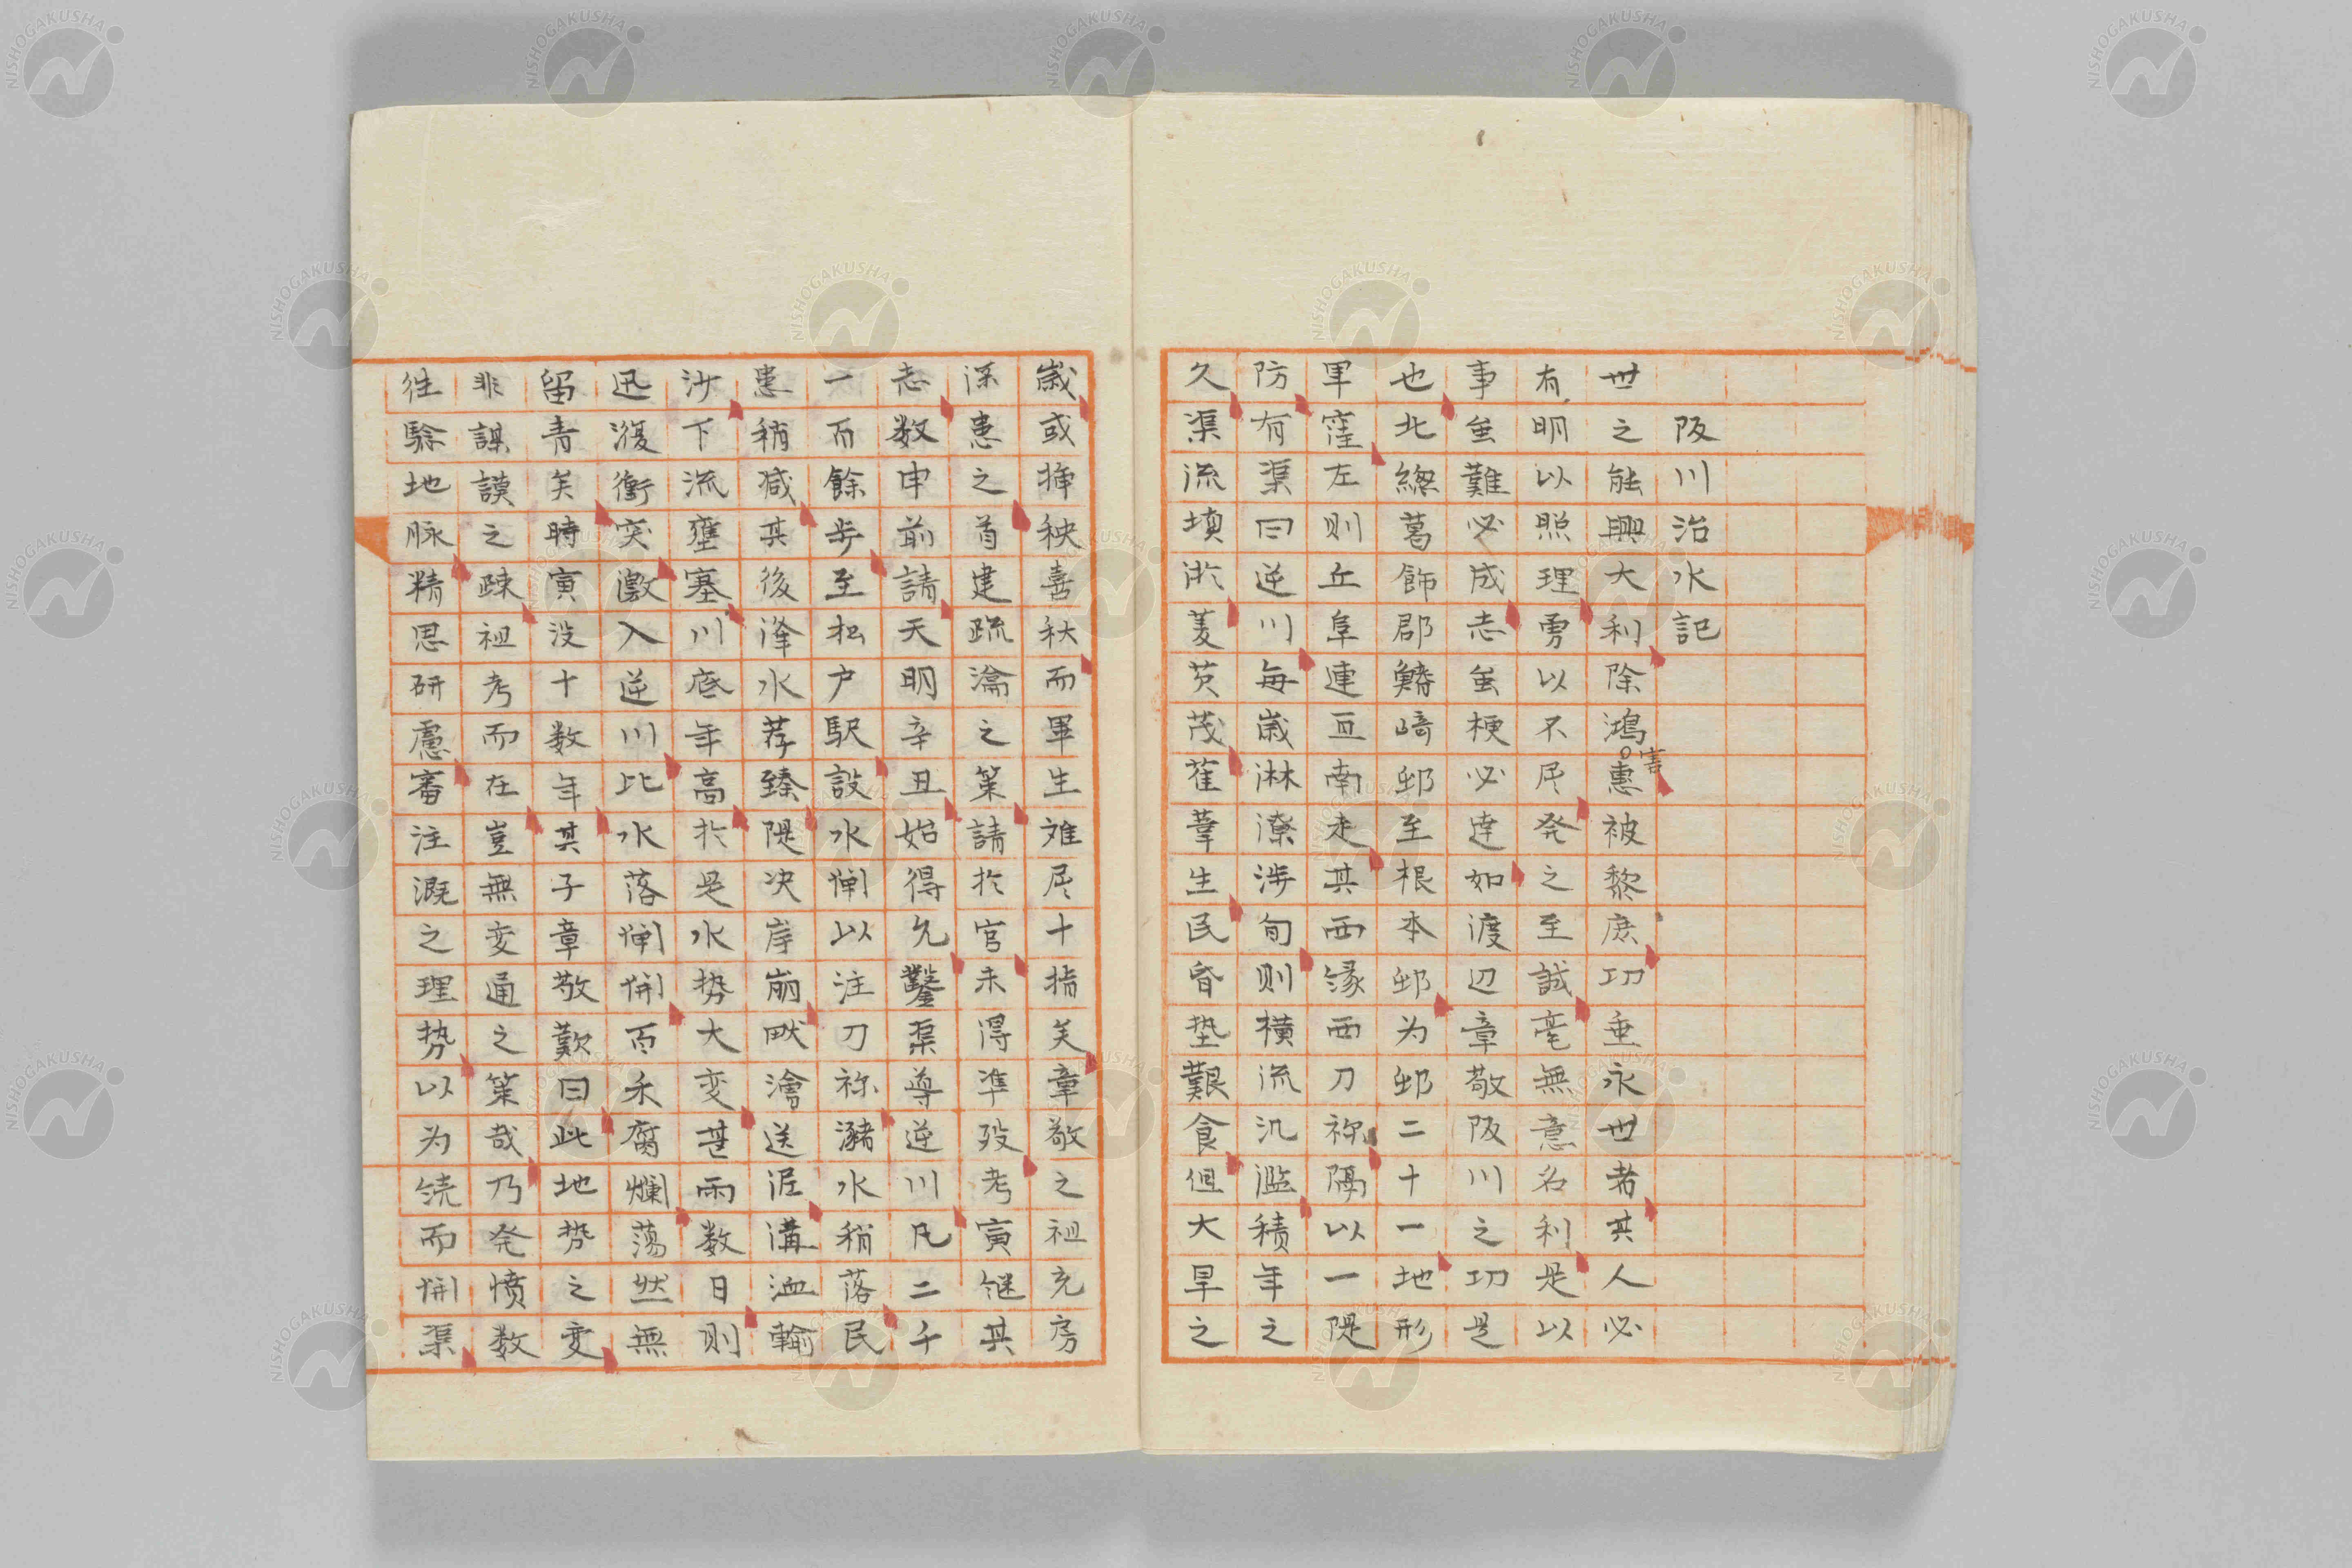 阪川治水記
世之能興大利除鴻害惠被黎庶功垂永世者其人必
有明以照理勇以不尽発之至誠毫無意名利是以
事虽難必成志虽梗必達如渡辺章敬阪川之功是
也北總葛飾郡鰭ヶ崎邨至根本邨为邨二十一地形
軍窪左则丘阜連亘南走其西縁西刀祢隔以一隄
防有渠曰逆川每歳淋潦涉旬则横流汎濫積年之
久渠流墳淤葭茨茂萑葦生民昏垫艱食但大旱之
歳或挿秧喜秋而單生难尽十指矣章敬之祖充房
深患之首建疏瀹之策請於官未得準殁考寅継其
志数申前請天明辛丑始得允鑿渠導逆川凡二千
一百餘步至松户駅設水閘以注刀祢瀦水稍落民
患稍减其後洚水荐臻隄决岸崩畎澮送泥溝洫輸
沙下流壅塞川底年高於是水势大变甚雨数日则
迅澓衝突激入逆川比水落閘開而禾腐爛蕩然無
留青矣時寅没十数年其子章敬歎曰此地势之变
非謀謨之疎祖考而在豈無变通之策哉乃発愤数
往騐地脉精思研慮審注溉之理势以为繞而開渠
NISHOGAKUSHA